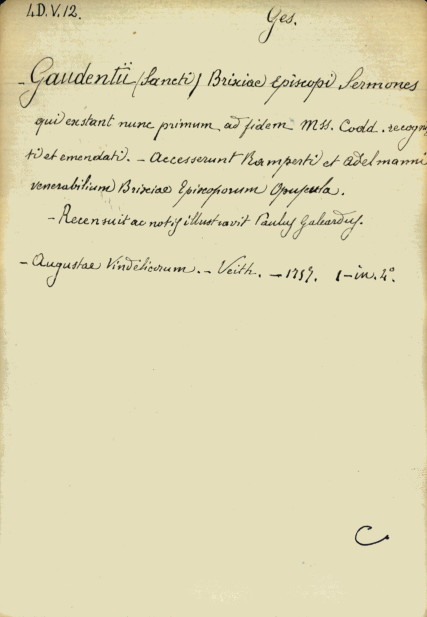 4.D.V.12.
Ges.
- Gaudentii (Sancti) Brixiae Episcopi Sermones
qui exstant nunc primum ad fidem Mss. Codd. recogni
ti et emendati. - Accesserunt Ramperti et Adelmanni
venerabilium Brixiae Episcoporum Opuscula.
- Recensuit ac notis illustravit Paulus Galeardus.
- Augustae Vindelicorum. - Veith. - 1757. 1 - in. 4°.
C